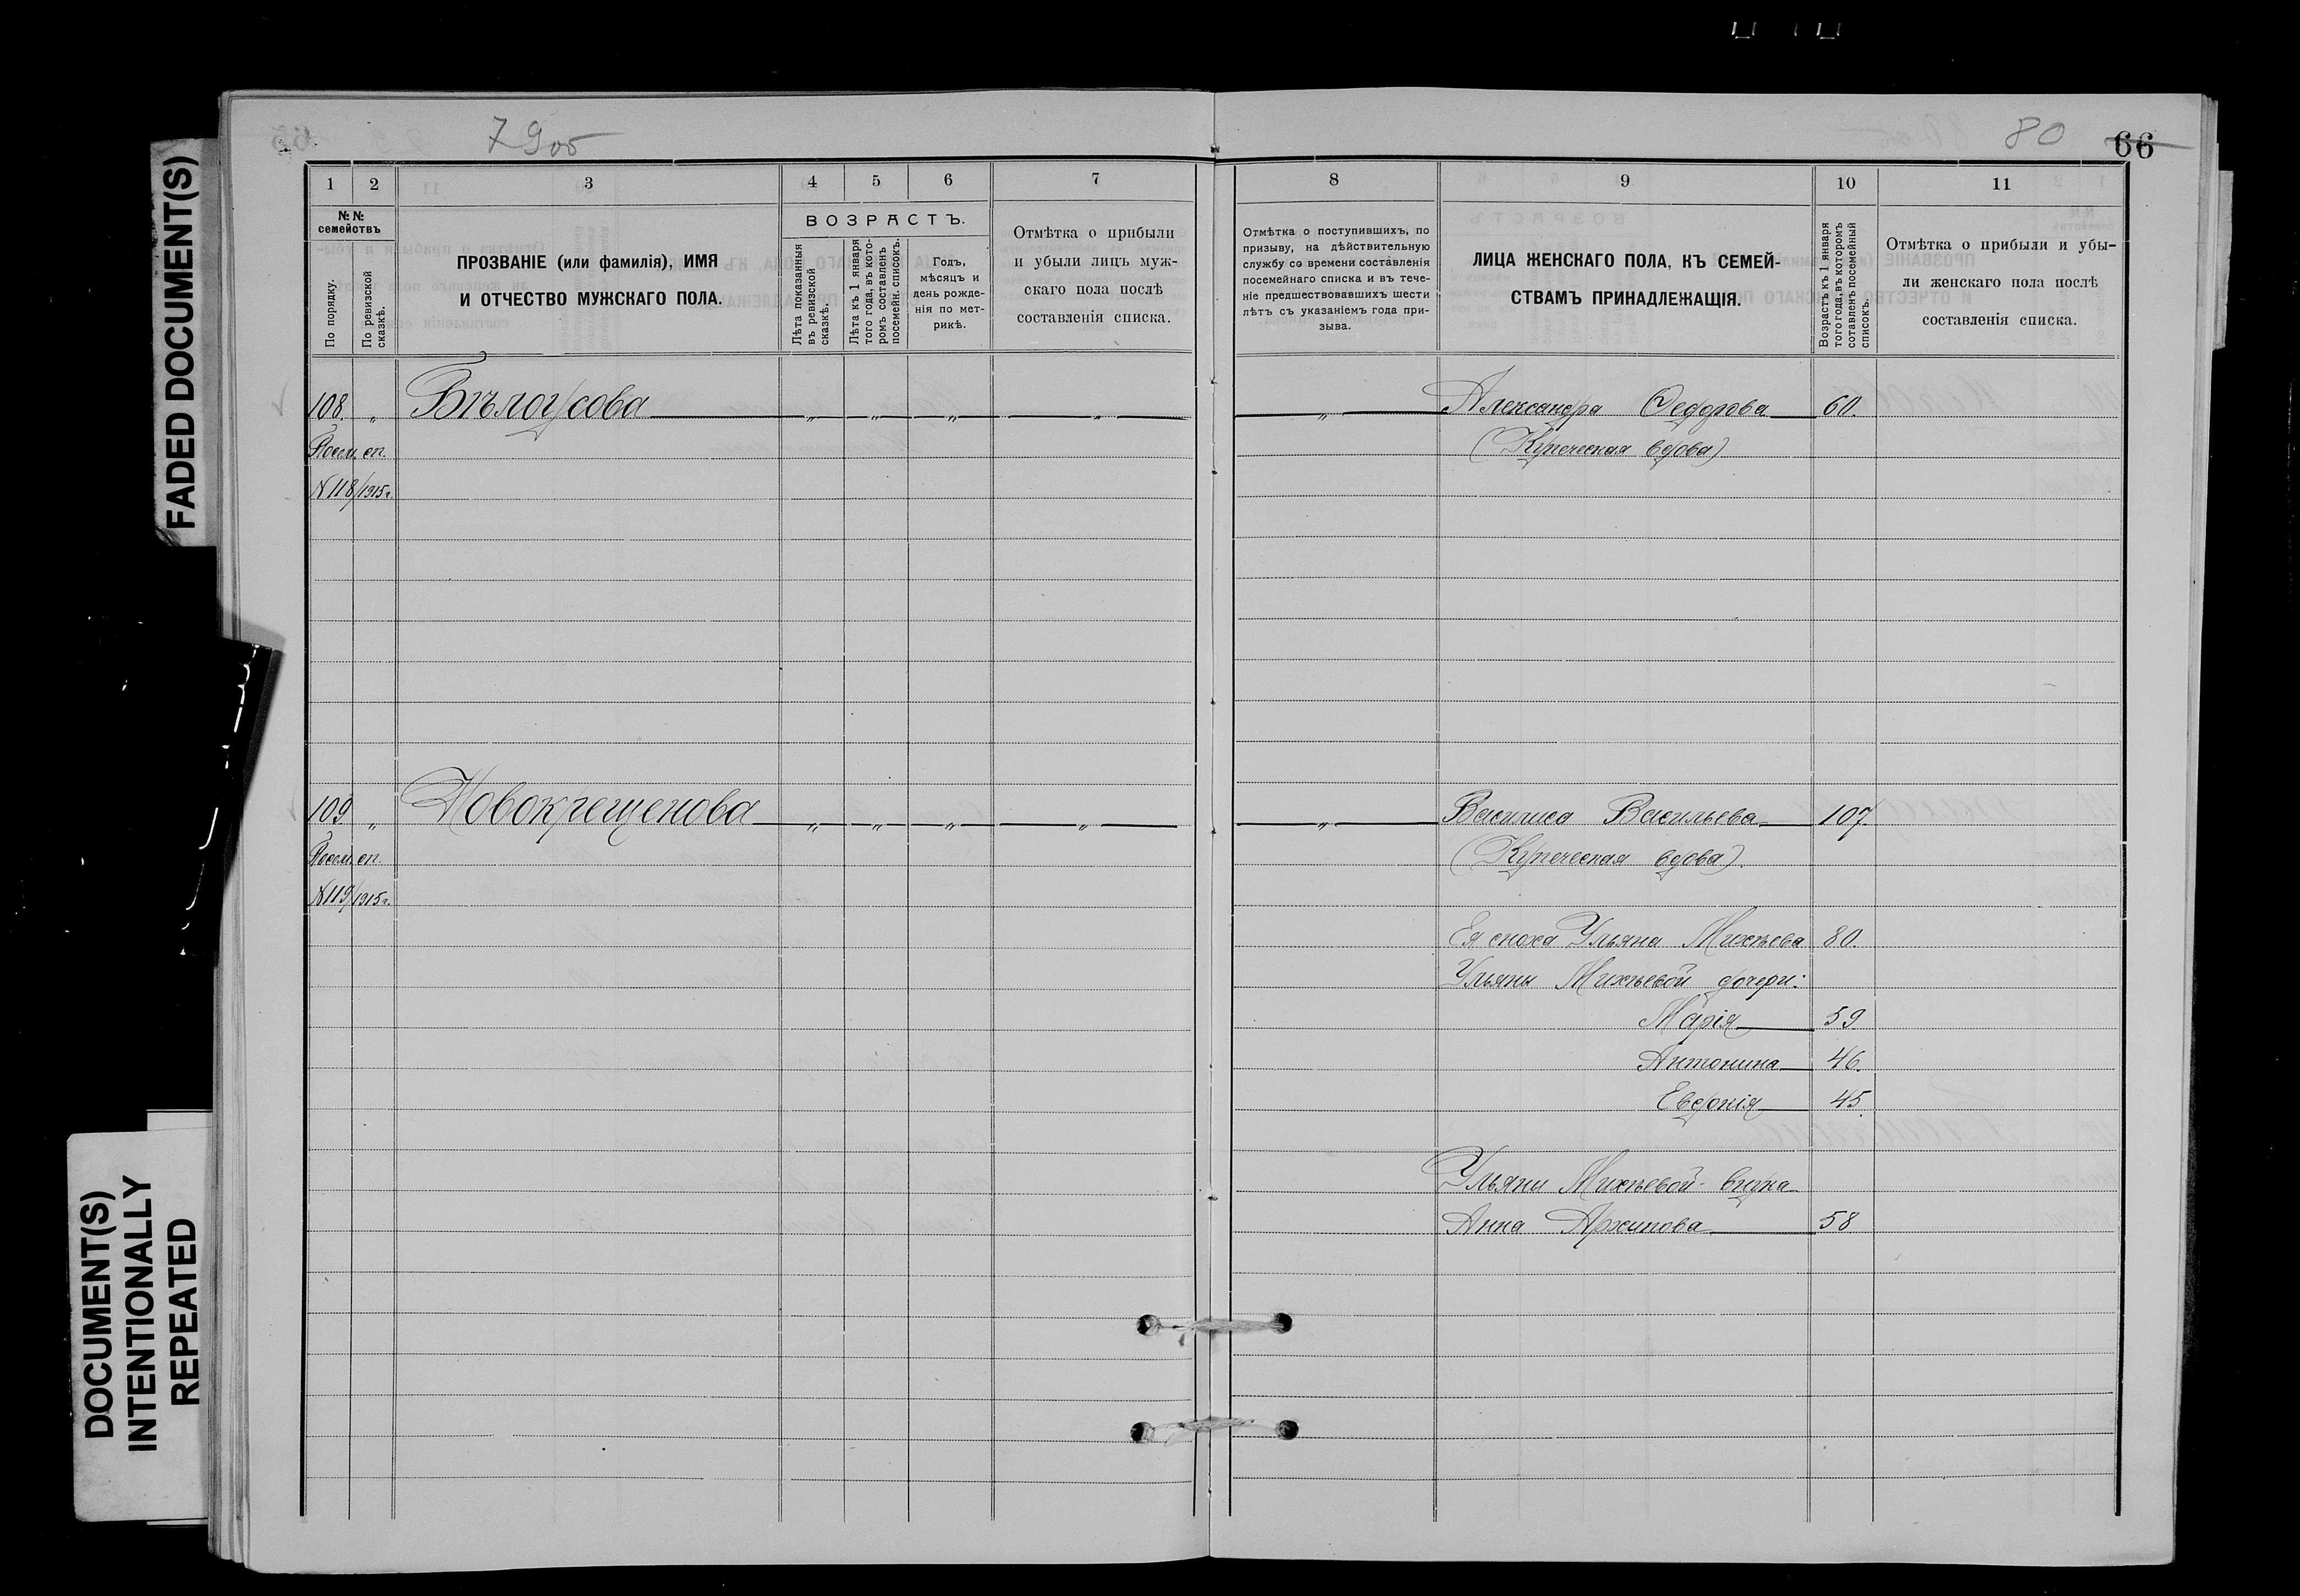 FADED DOCUMENT(S)
DOCUMENT(S)
INTENTIONALLY
REPEATED
79об
1 2 3 4 5 6 7
№№
семействъ
По порядку.
По ревизской
сказкѣ.
ПРОЗВАНІЕ (или фамилія), ИМЯ
И ОТЧЕСТВО МУЖСКАГО ПОЛА.
ВОЗРАСТЪ.
Лѣта показанныя
въ ревизской
сказкѣ.
Лѣта къ 1 января
того года, въ кото-
ромъ составленъ
посемейн. списокъ.
Годъ,
мѣсяцъ и
день рожде-
нія по мет-
рикѣ.
Отмѣтка о прибыли
и убыли лицъ муж-
скаго пола послѣ
составленія списка.
108. „ Бѣлоусова „ „ „ „
Посем. сп.
N118/1915г.
109 „ Новокрещенова „ „ „ „
Посем. сп.
N119/1915г.
80
66
8 9 10 11
Отмѣтка о поступившихъ, по
призыву, на дѣйствительную
службу со времени составленія
посемейнаго списка и въ тече-
ніе предшествовавшихъ шести
лѣтъ съ указаніемъ года при-
зыва.
ЛИЦА ЖЕНСКАГО ПОЛА, КЪ СЕМЕЙ-
СТВАМЪ ПРИНАДЛЕЖАЩІЯ.
Возрастъ къ 1 января
того года, въ которомъ
составленъ посемейный
списокъ.
Отмѣтка о прибыли и убы-
ли женскаго пола послѣ
составленія списка.
„ Александра Ѳедорова 60.
(Купеческая вдова)
„ Василиса Васильева 107.
(Купеческая вдова).
Ея сноха Ульяна Михѣева 80.
Ульяны Михѣевой дочери:
Марія 59
Антонина 46.
Евдокія 45.
Ульяны Михѣевой внука
Анна Архипова 58